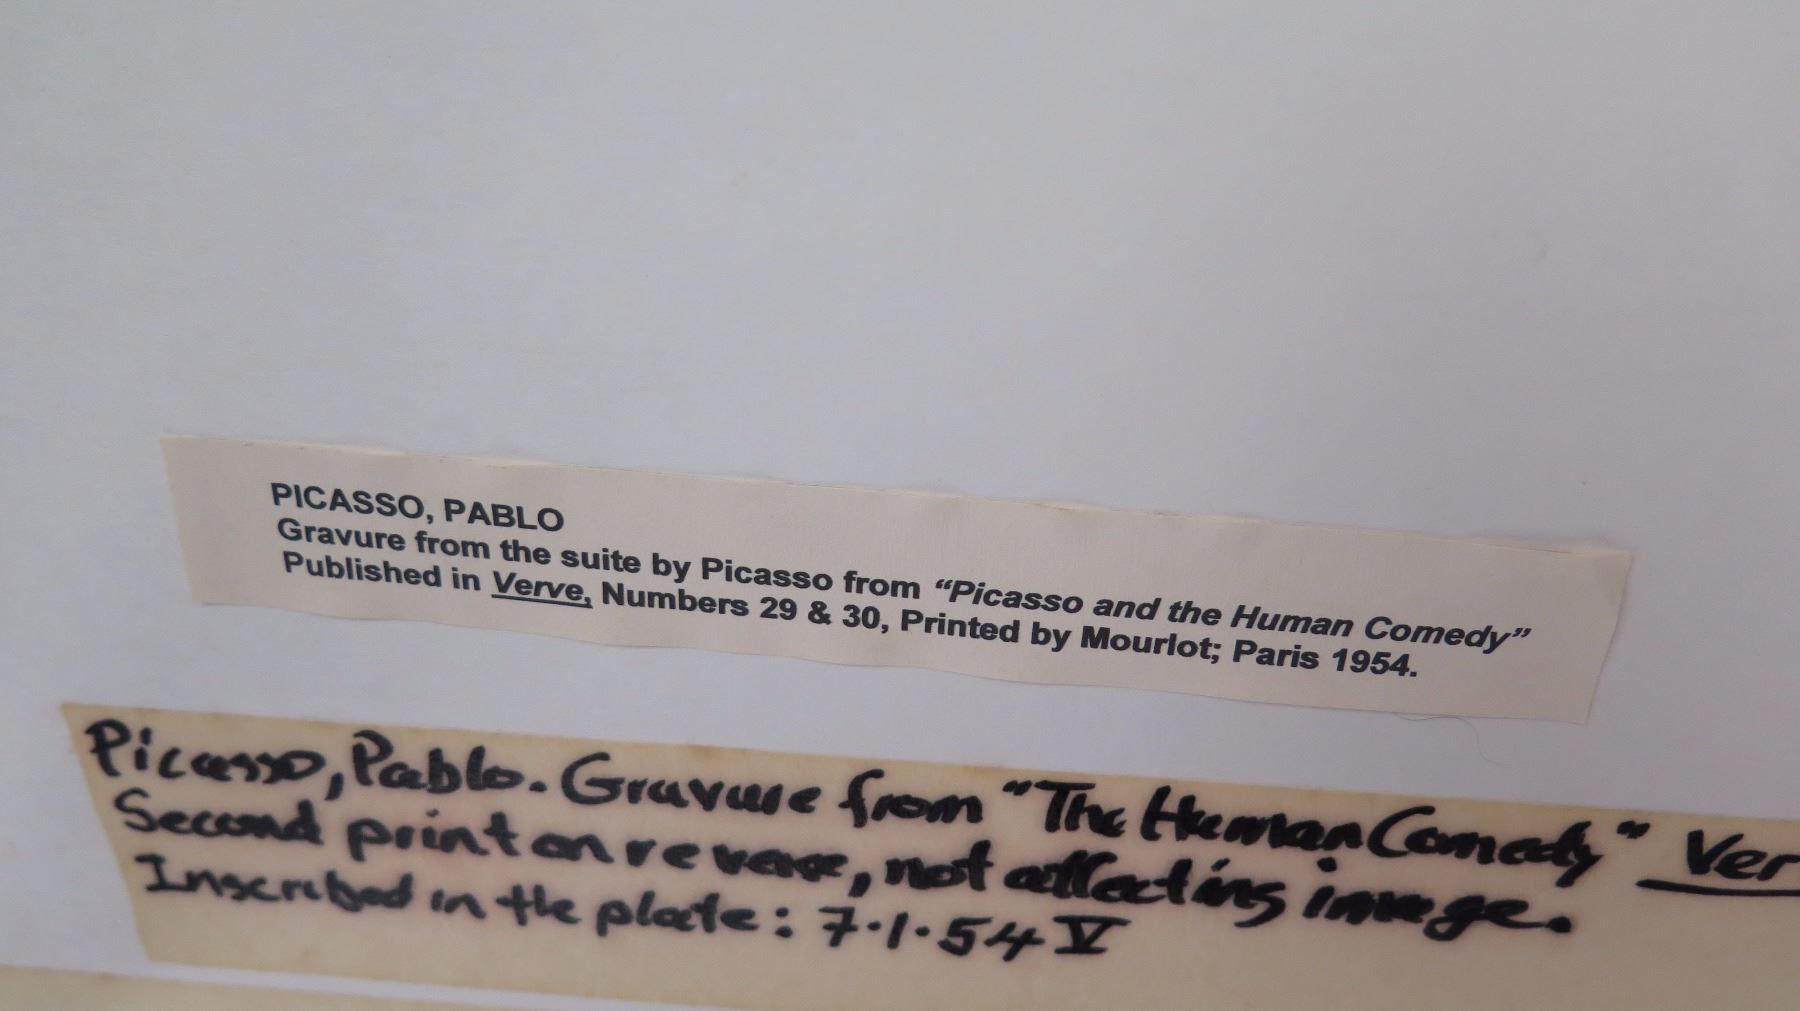 PICASSO, PABLO
Gravure from the suite by Picasso from “Picasso and the Human Comedy”
Published in Verve, Numbers 29 & 30, Printed by Mourlot; Paris 1954.
Picasso, Pablo. Gravure from "The Human Comedy" Ver
Second print on reverse, not affecting image.
Inscribed in the plate: 7.1.54 V